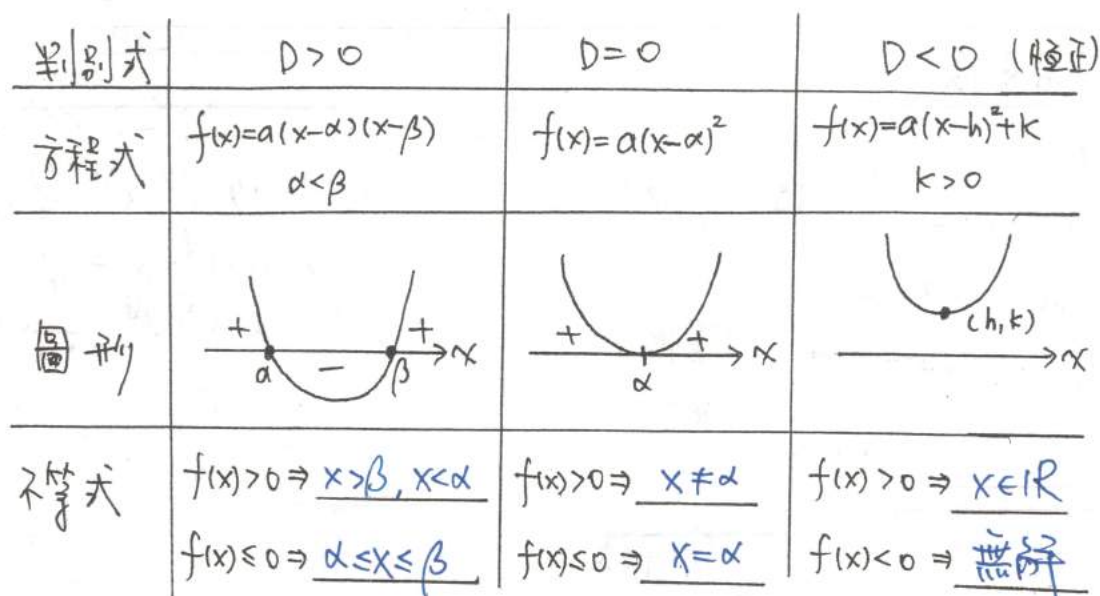 判別式 D>0 D=0 D<0 (恆正)
方程式 f(x)=a(x-α)(x-β) f(x)=a(x-α)² f(x)=a(x-h)²+k
α<β k>0
圖形 + - + + + (h,k)
α β x α x x
不等式 f(x)>0⇒ x>β, x<α f(x)>0⇒ x≠α f(x)>0⇒ x∈ℝ
f(x)≤0⇒ α≤x≤β f(x)≤0⇒ x=α f(x)<0⇒ 無解